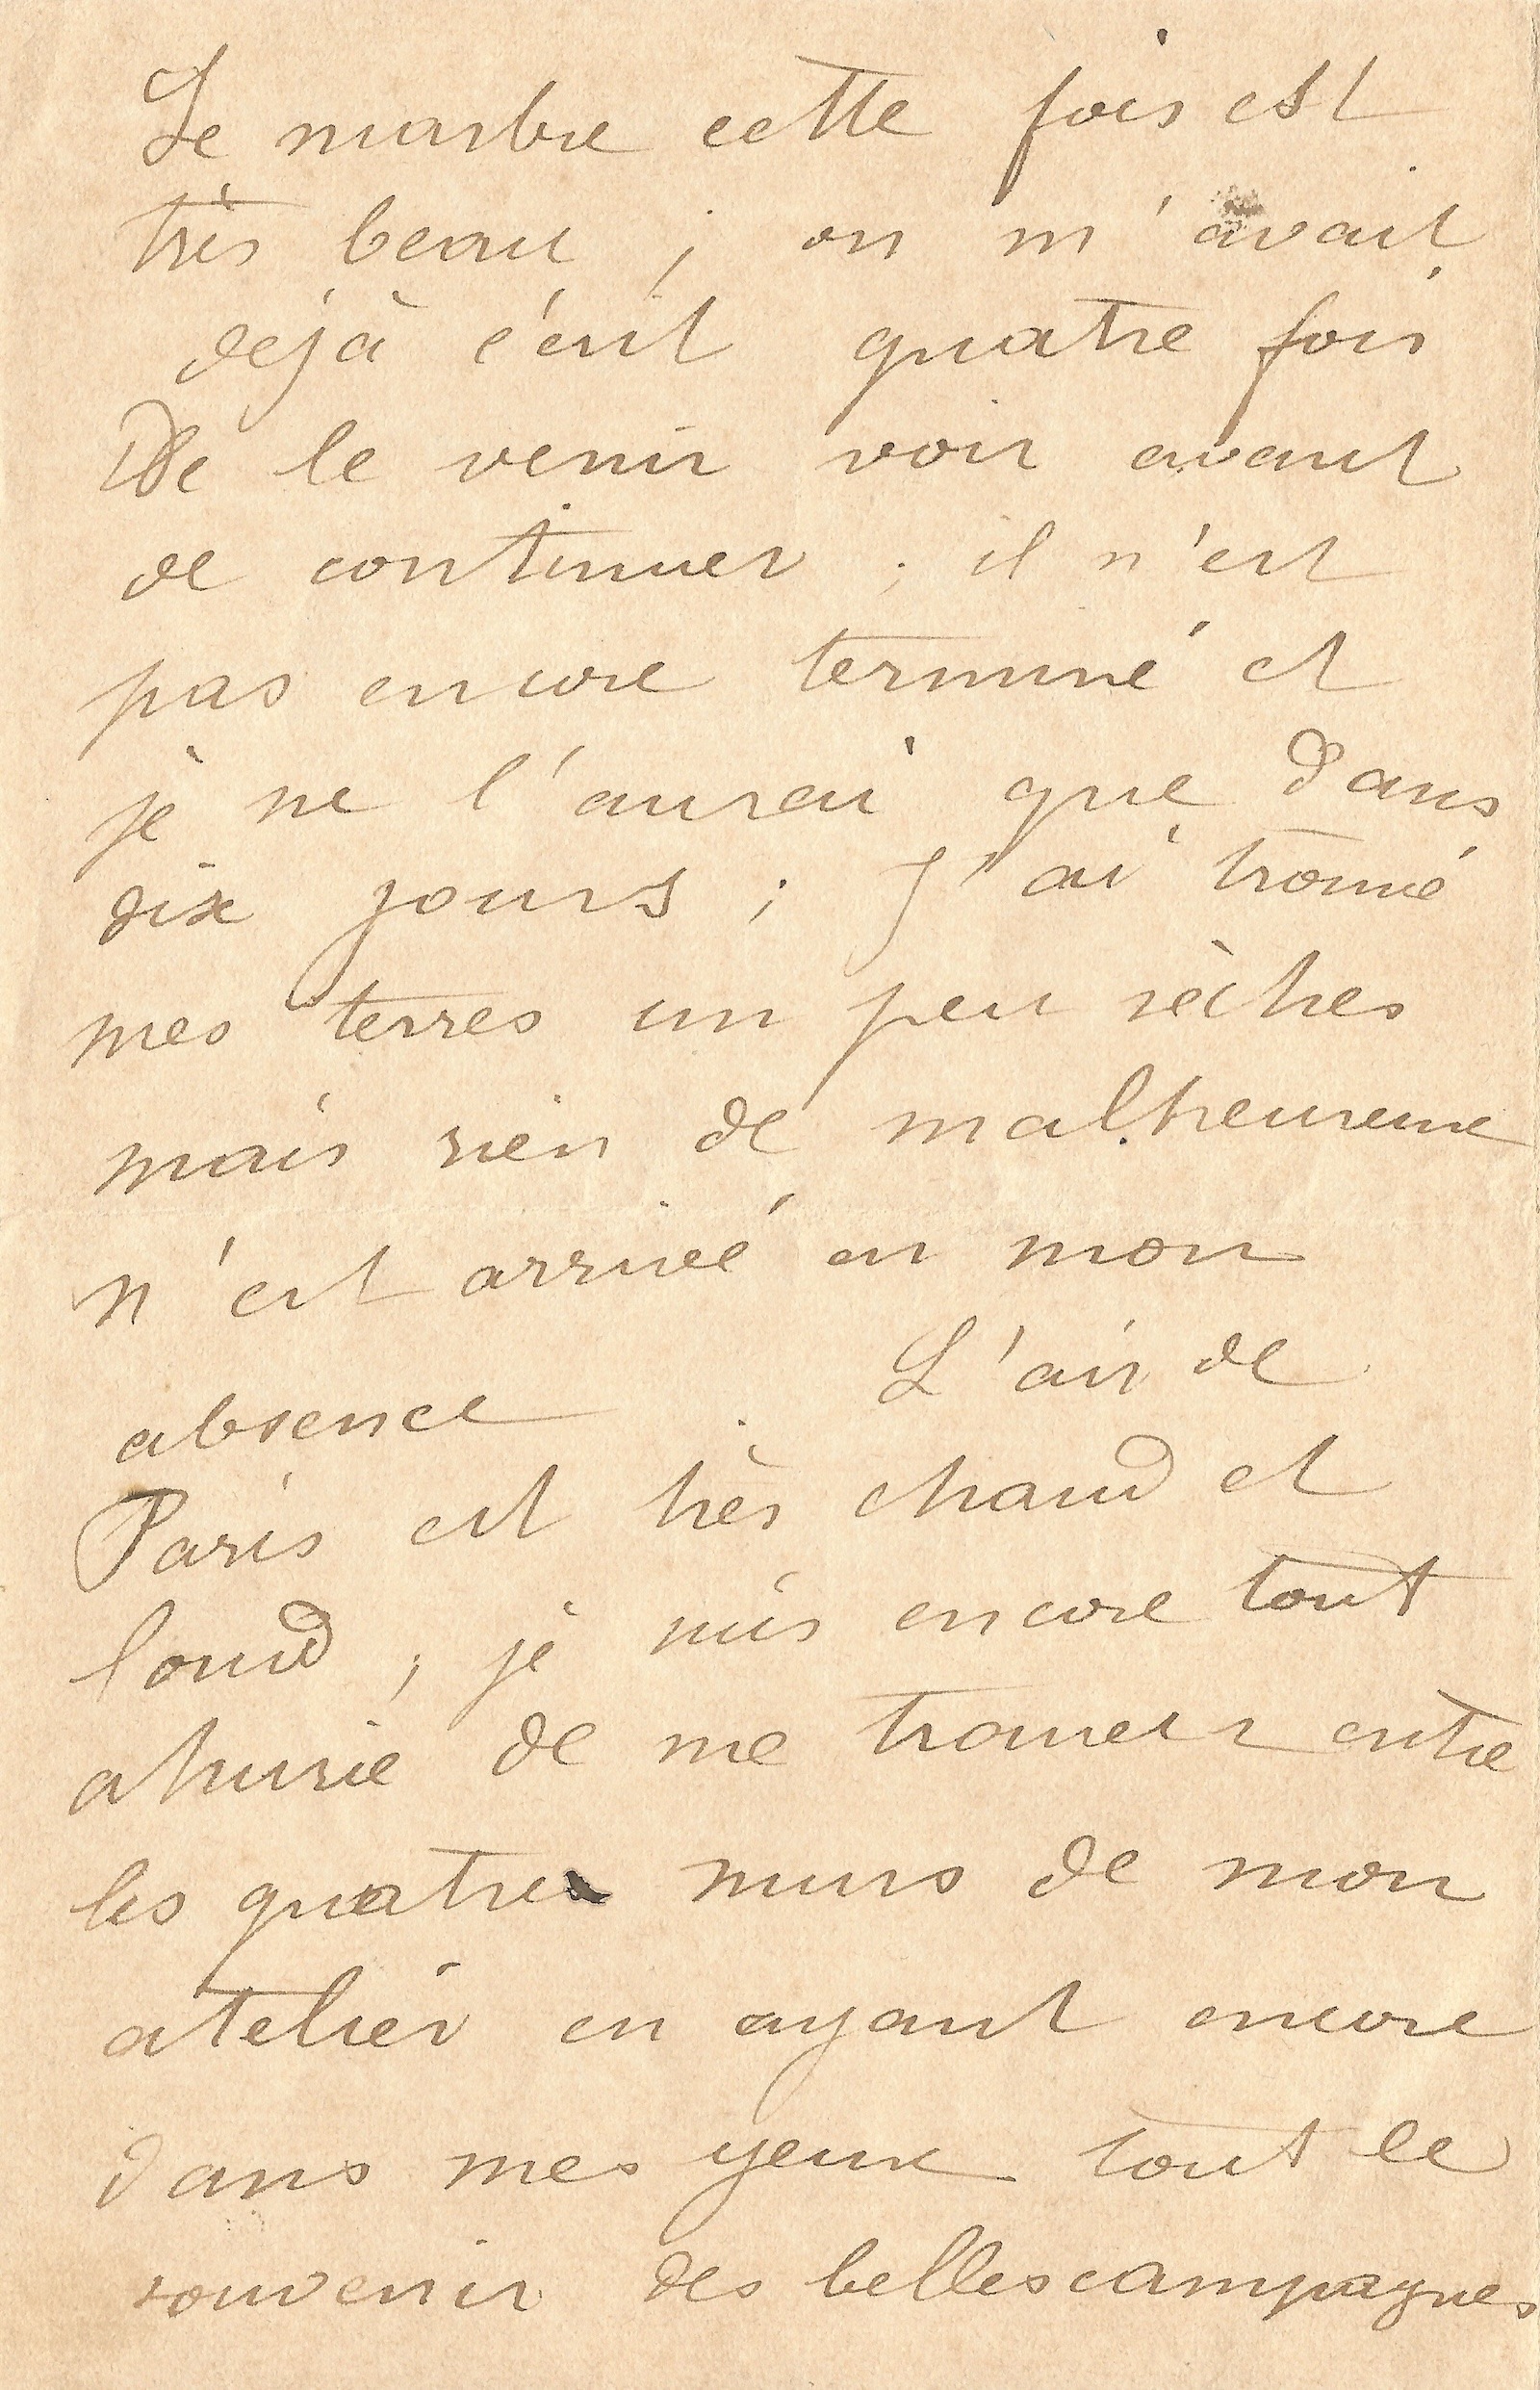 Le marbre cette fois est
très beau ; on m'avait
déjà écrit quatre fois
De le venir voir avant
de continuer ; il n'est
pas encore terminé et
je ne l'aurai que dans
dix jours ; J'ai trouvé
mes terres un peu sèches
mais rien de malheureux
n'est arrivé en mon
absence . L'air de
Paris est très chaud et
lourd ; je suis encore tout
ahurie de me trouver entre
les quatre murs de mon
atelier en ayant encore
dans mes yeux tout le
souvenir des belles campagnes